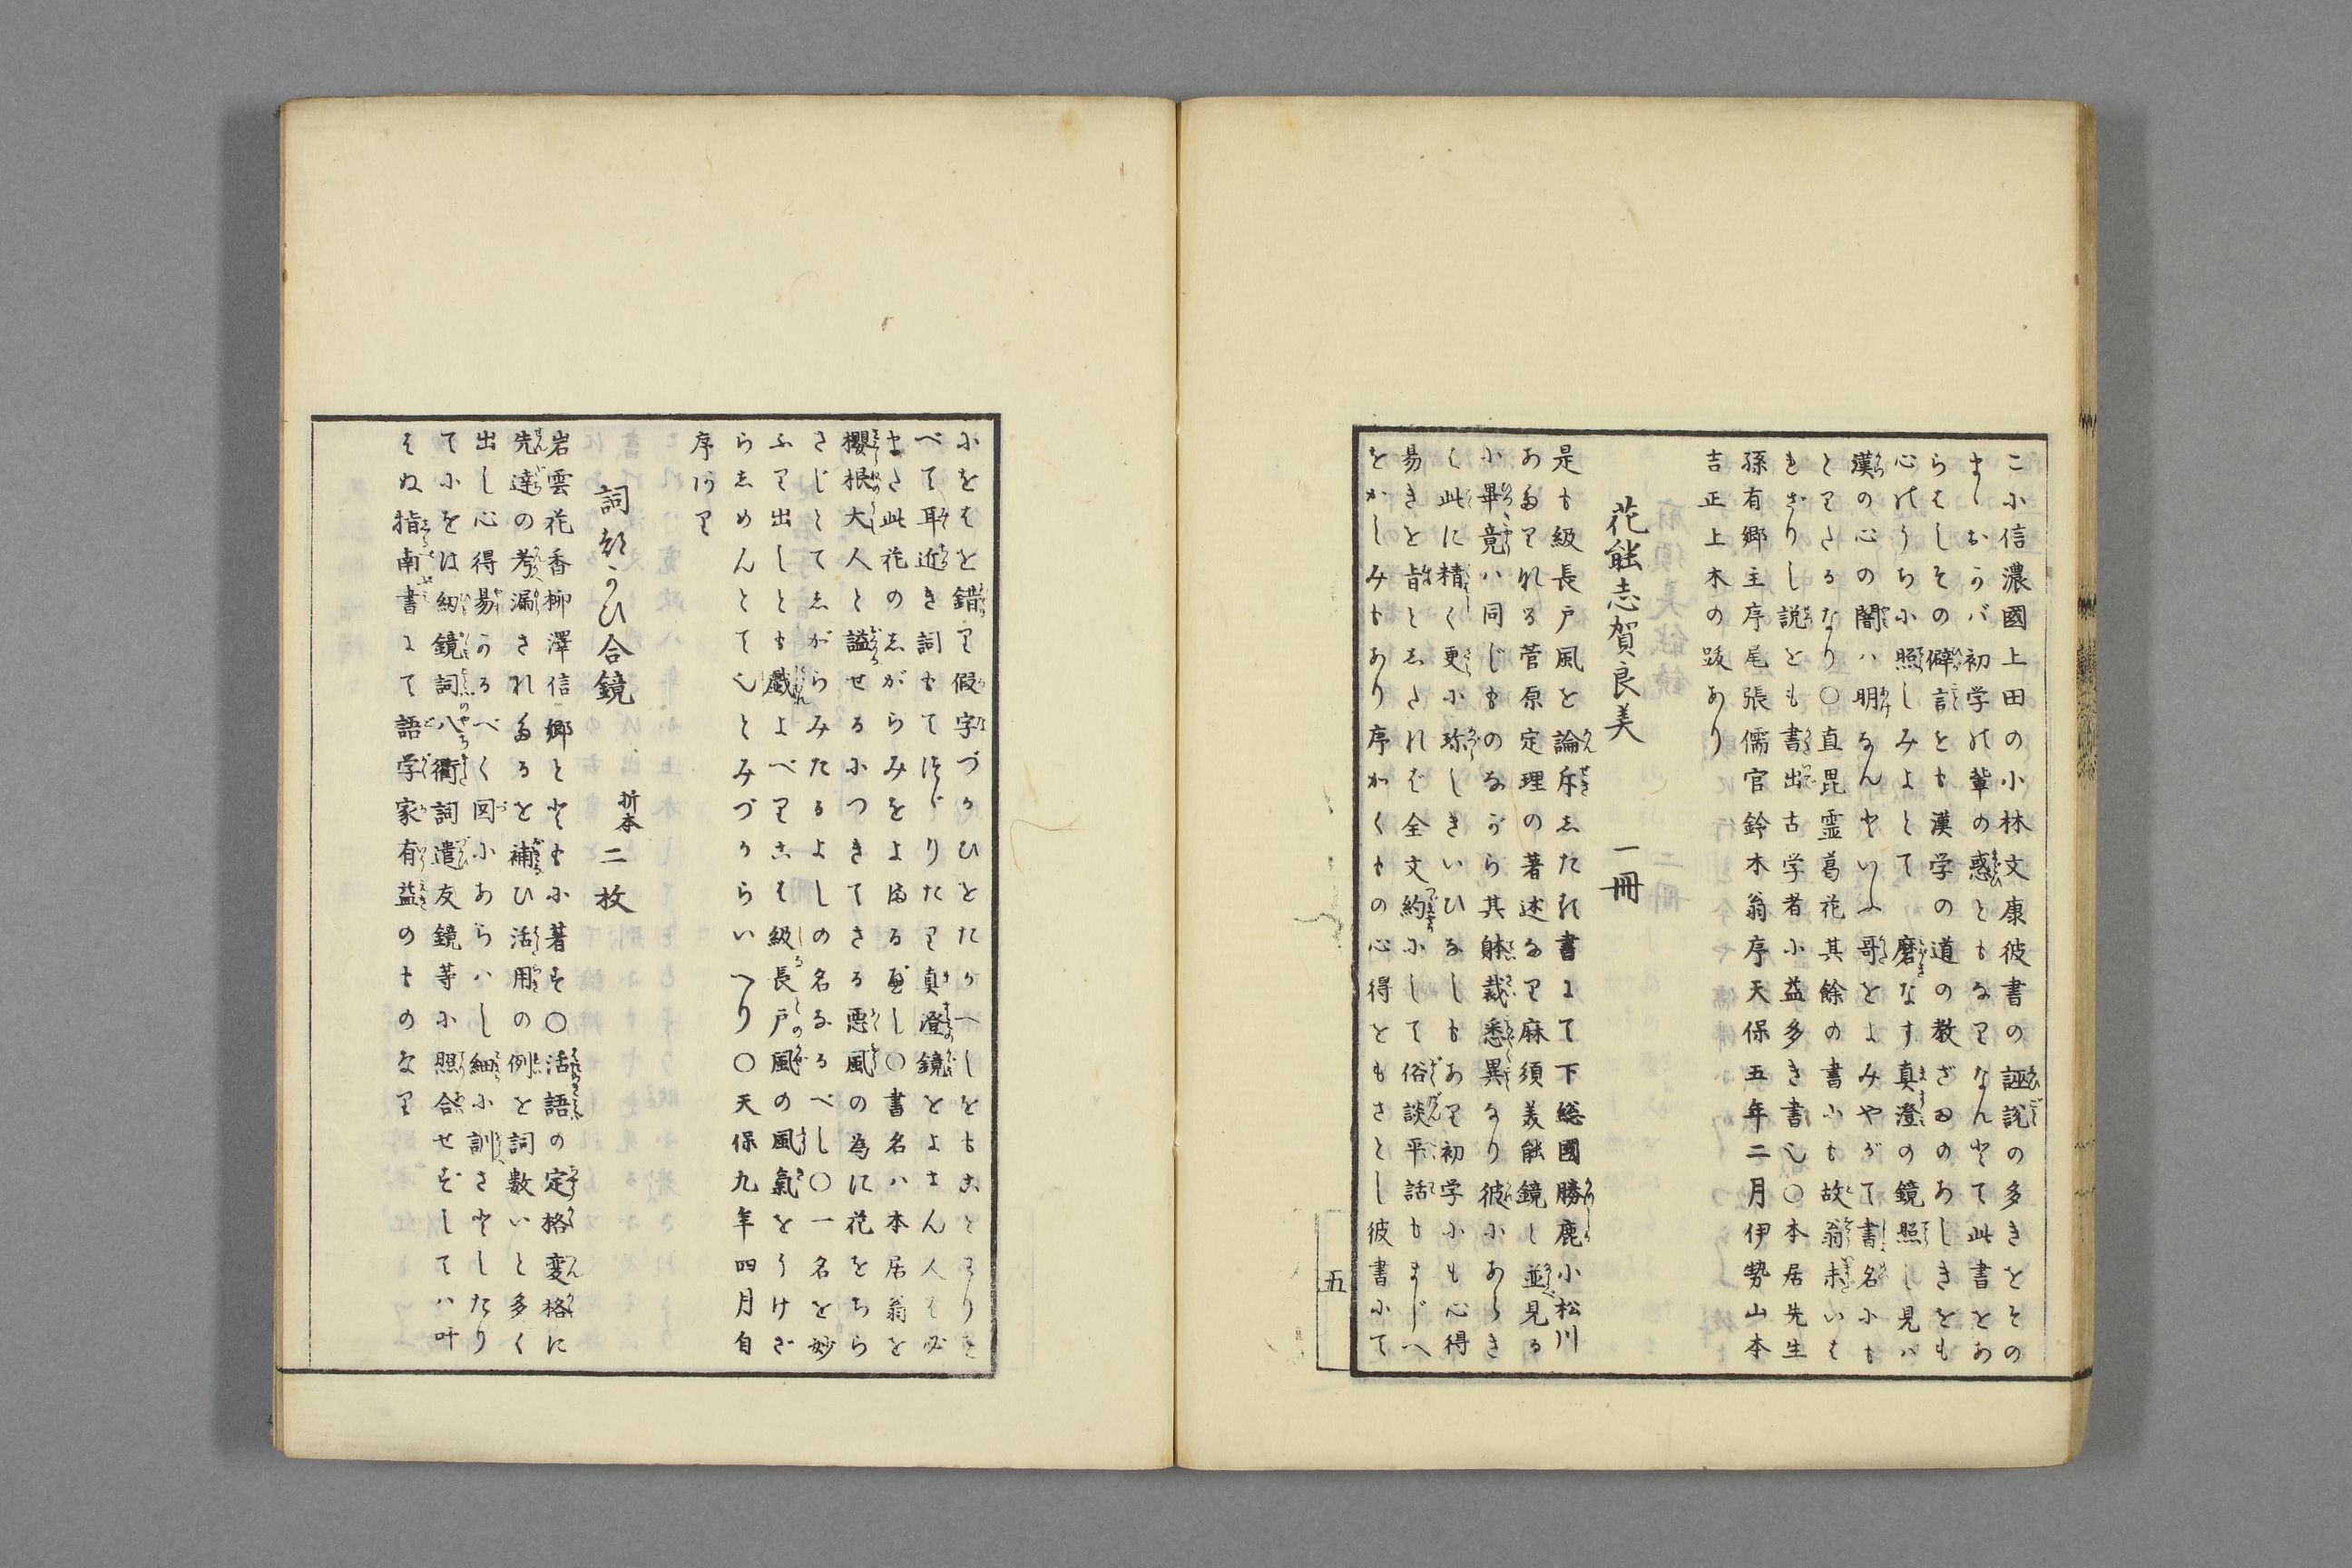 こに信濃國上田の小林文康彼書の誣説の多きをその
まゝおかバ初学の輩の惑ともなりなんとて此書をあ
らはしその僻言とも漢学の道の教ざまのあしきをも
心のうちに照しみよとて磨なす真澄の鏡照し見バ
漢の心の闇ハ明なんといふ哥をよみやがて書名にも
とりたるなり〇直毘霊葛花其餘の書にも故翁未いは
れざりし説とも書出古学者に益多き書也〇本居先生
孫有郷主序尾張儒官鈴木翁序天保五年二月伊勢山本
吉正上木の跋あり
花能志賀良美 一冊
是も級長戸風を論斥したれ書にて下総國勝鹿小松川
あたりれる菅原定理の著述なり麻須美能鏡と並見る
に畢竟ハ同じものながら其躰裁悉異なり彼にあらき
く此に精く更に珎しきいひなしもあり初学にも心得
易きを旨としたれば全文約にして俗談平話もまじへ
をかしみもあり序かくもの心得ともさとし彼書にて
五
にをはを錯り假字づかひをたがへしをもことわりを
べて耳近き詞もてほどりたり真澄鏡とよまん人は必
また此花のしがらみをよまる可し〇書名ハ本居翁を
櫻根大人と謚せるにつきてさる悪風の為に花をちら
さじとてしがらみたるよしの名なるべし〇一名を妙
ふり出しとも戯よべりこは級長戸風の風氣をうけざ
らしめんとて也とみづからいへり〇天保九年四月自
序あり
詞都かひ合鏡 折本 二枚
岩雲花香柳澤信郷とともに著す〇活語の定格変格に
先達の考漏されたるを補ひ活用の例を詞数いと多く
出し心得易かるべく図にあらハし細に訓さとしたり
てにをは網鏡詞八衢詞遣友鏡等に照合せずしてハ叶
はぬ指南書にて語学家有益のものなり